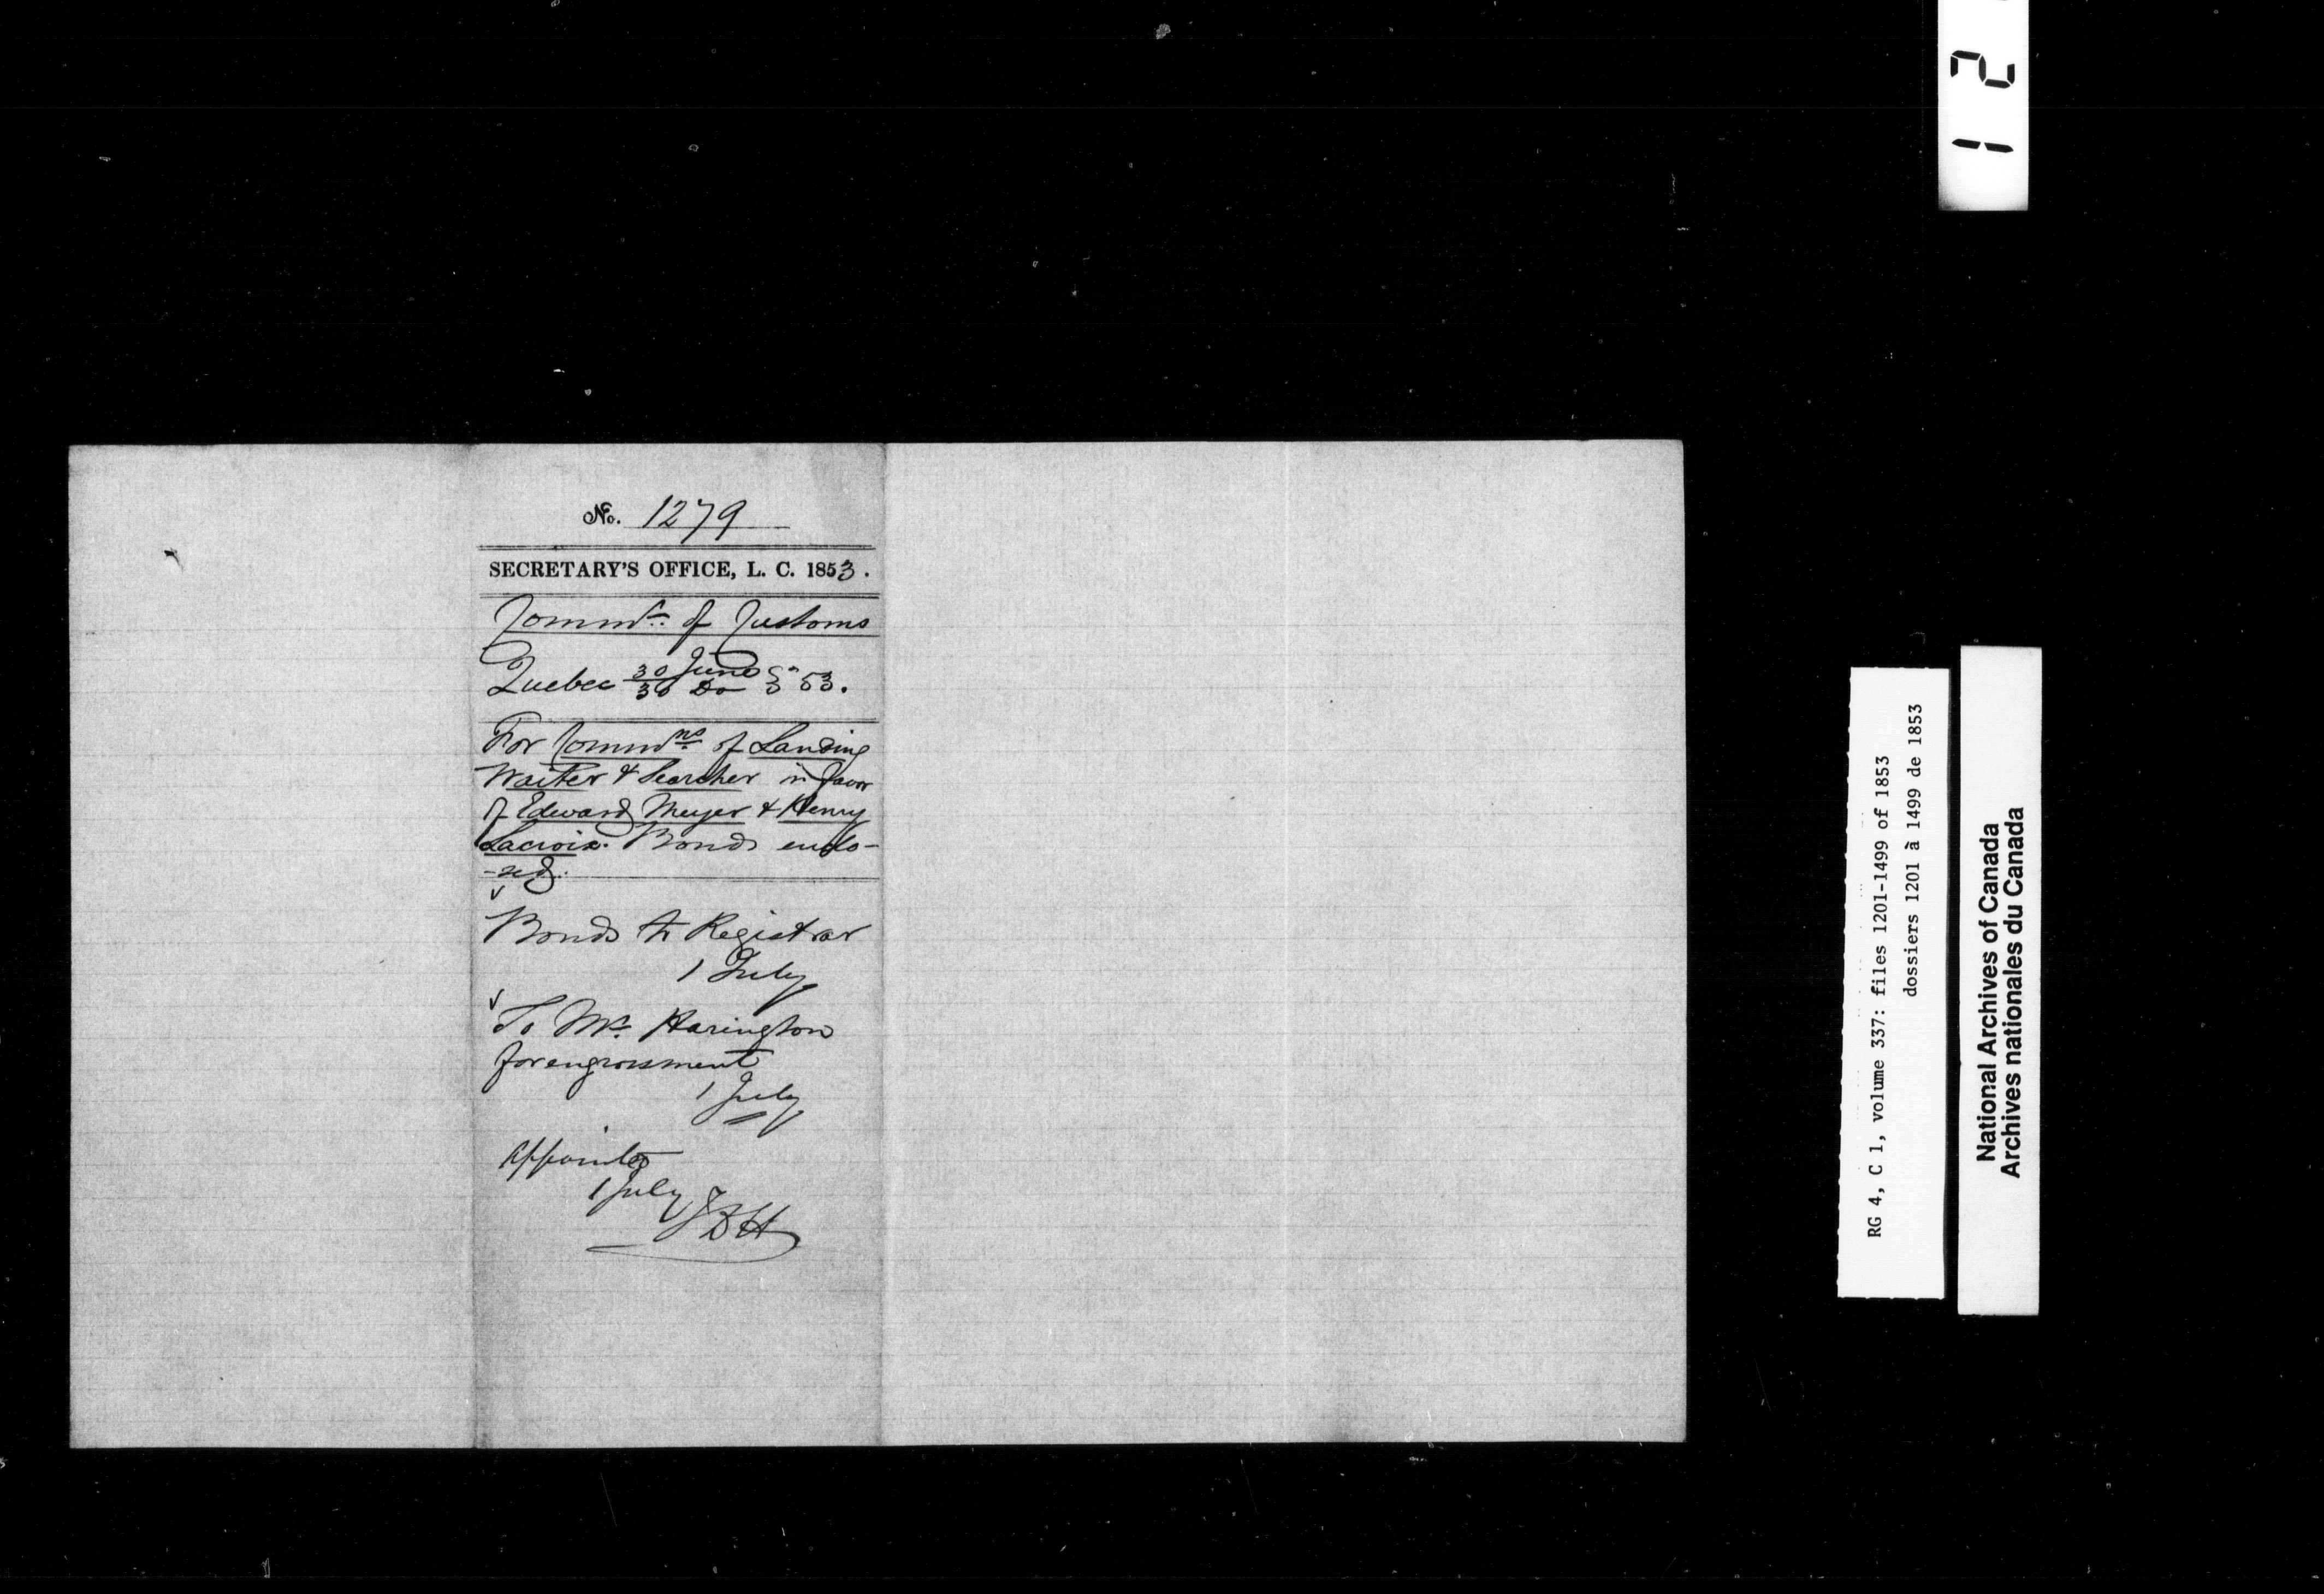 No. 1279
SECRETARY'S OFFICE, L. C. 1853.
Commr. of Customs
Quebec 30 June / 30 Do 53.
For Commns of Landing
Waiter & Searcher in favor
of Edward Meyer & Henry
Lacroix. Bonds enclo-
-sed.
Bonds to Registrar
1 July
To Mr. Harington
for engrossment
1 July
Appointed
1 July
JBH
12
RG 4, C 1, volume 337: files 1201-1499 of 1853
dossiers 1201 à 1499 de 1853
National Archives of Canada
Archives nationales du Canada